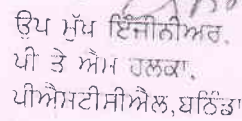 ਉਪ ਮੁੱਖ ਇੰਜੀਨੀਅਰ,
ਪੀ ਤੇ ਐਮ ਹਲਕਾ,
ਪੀਐਸਟੀਸੀਐਲ,ਬਠਿੰਡਾ